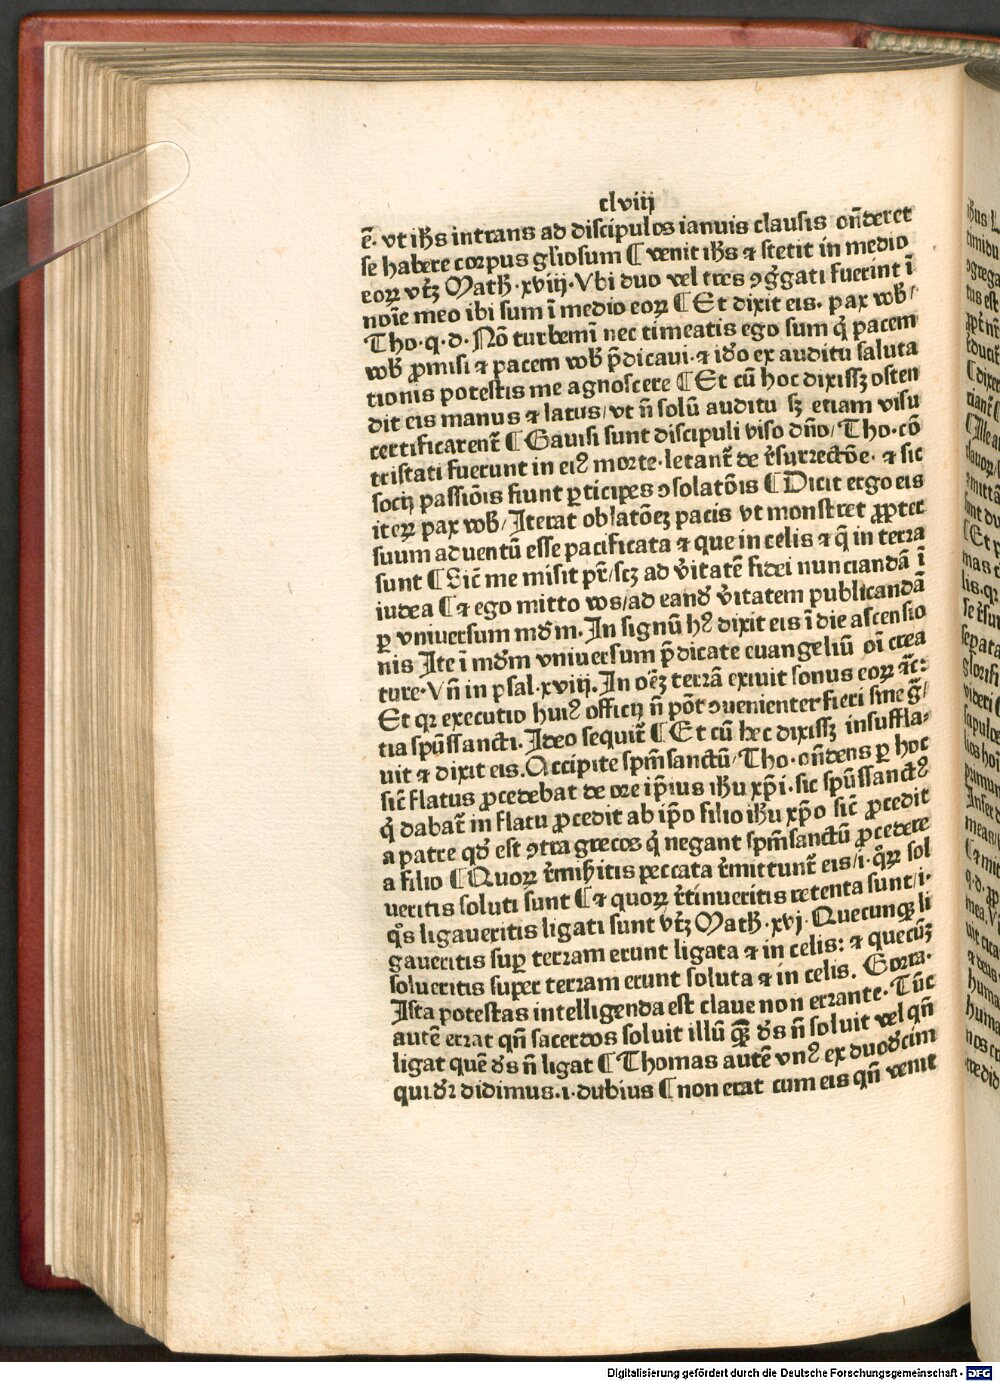 clviij
ē. vt ihs intrans ad discipulos ianuis clausis on̄deret
se habere corpus gl̄iosum ¶ venit ihs ⁊ stetit in medio
eoꝝ vtꝫ Math̄.xviij. Vbi duo vel tres ꝯg̃gati fuerint ī
noīe meo ibi sum ī medio eoꝝ ¶ Et dixit eis. pax vob̄/
Tho.q.d. Nō turbemī nec timeatis ego sum q̇ pacem
vob̄ ꝓmisi ⁊ pacem vob̄ p̄dicaui. ⁊ id̄o ex auditu saluta
tionis potestis me agnoscere ¶ Et cū hoc dixissꝫ osten
dit eis manus ⁊ latus/ vt n̄ solū auditu sꝫ etiam visu
certificarent̄ ¶ Gauisi sunt discipuli viso dn̄o/ Tho. cō
tristati fuerunt in eiꝰ morte. letant̄ de r̄surrectōe. ⁊ sic
socij passiōis fiunt ꝑticipes ꝯsolatōis ¶ Dicit ergo eis
iteꝝ pax vob̄/ Iterat oblatōeꝫ pacis vt monstret ꝓpter
suum aduentū esse pacificata ⁊ que in celis ⁊ q̄ in terra
sunt ¶ Sic̄ me misit pr̄/ scꝫ ad v̄itatē fidei nunciandā ī
iudea ¶ ⁊ ego mitto vos/ ad eand̄ v̄itatem publicandā
ꝑ vniuersum md̄m. In signū hꝰ dixit eis ī die ascensio
nis Ite ī md̄m vniuersum p̄dicate euangeliū oī crea
ture. Vn̄ in psal.xviij. In oēꝫ terrā exiuit sonus eoꝝ ⁊c̄:
Et qꝛ executio huiꝰ officij n̄ pōt ꝯuenienter fieri sine g̃/
tia spūssancti. Ideo sequit̄ ¶ Et cū hec dixissꝫ insuffla⸗
uit ⁊ dixit eis. Accipite spm̄sanctū/ Tho. on̄dens ꝑ hoc
sic̄ flatus ꝓcedebat de ore ip̄ius ihu xp̄i. sic spūssanctꝰ
q̇ dabat̄ in flatu ꝓcedit ab ip̄o filio ihu xp̄o sic̄ ꝓcedit
a patre qd̄ est ꝯtra grecos q̇ negant spm̄sanctū ꝓcedere
a filio ¶ Quoꝝ r̄mis̄itis peccata r̄mittunt̄ eis/ i. q̇ꝝ sol
ueritis soluti sunt ¶ ⁊ quoꝝ r̄tinueritis retenta sunt/ i.
q̇s ligaueritis ligati sunt vtꝫ Math̄.xvj. Quecunqꝫ li
gaueritis suꝑ terram erunt ligata ⁊ in celis: ⁊ quecūꝫ
solueritis super terram erunt soluta ⁊ in celis. Gorra.
Ista potestas intelligenda est claue non errante. Tūc
autē errat qn̄ sacerdos soluit illū quē d̄s n̄ soluit vel qn̄
ligat quē d̄s n̄ ligat ¶ Thomas autē vnꝰ ex duod̄cim
qui d̄r didimus. i. dubius ¶ non erat cum eis qn̄ venit
Digitalisierung gefördert durch die Deutsche Forschungsgemeinschaft - DFG